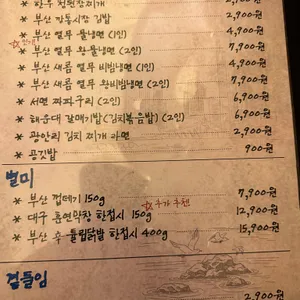 * 한우 된장찌개 2,900원
* 부산 깡통시장 김밥 2,900원
* 부산 열무 물냉면 (1인) 4,900원
* 부산 열무 왕물냉면 (2인) 7,900원
* 부산 새콤 열무 비빔냉면 (1인) 4,900원
* 부산 새콤 열무 왕비빔냉면 (2인) 7,900원
* 서면 짜파구리 (2인) 6,900원
* 해운대 갈매기밥(김치볶음밥) (2인) 6,900원
* 광안리 김치 찌개 라면 2,900원
* 공깃밥 900원
별미
* 부산 껍데기 150g 7,900원
* 대구 훈연막창 한접시 150g 12,900원
* 부산 후 튤립닭발 한접시 400g 15,900원
곁들임
2,900원